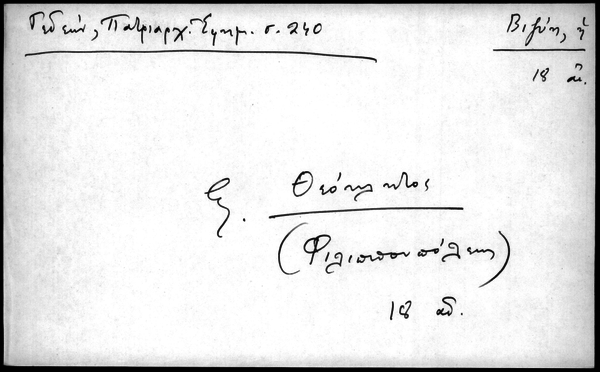 Γεδεών, Πατριαρχ. Ἐφημ. σ. 240
Βιζύη, ἡ
18 αἰ.
Θεόκλητος
(Φιλιππουπόλεως)
18 αἰ.